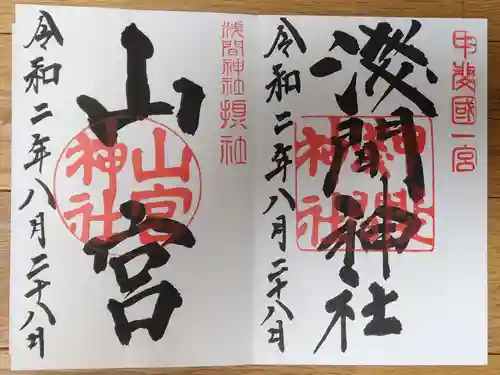 甲斐國一宮
浅間神社
淺間神社
令和二年八月二十八日
浅間神社摂社
山宮
山宮神社
令和二年八月二十八日